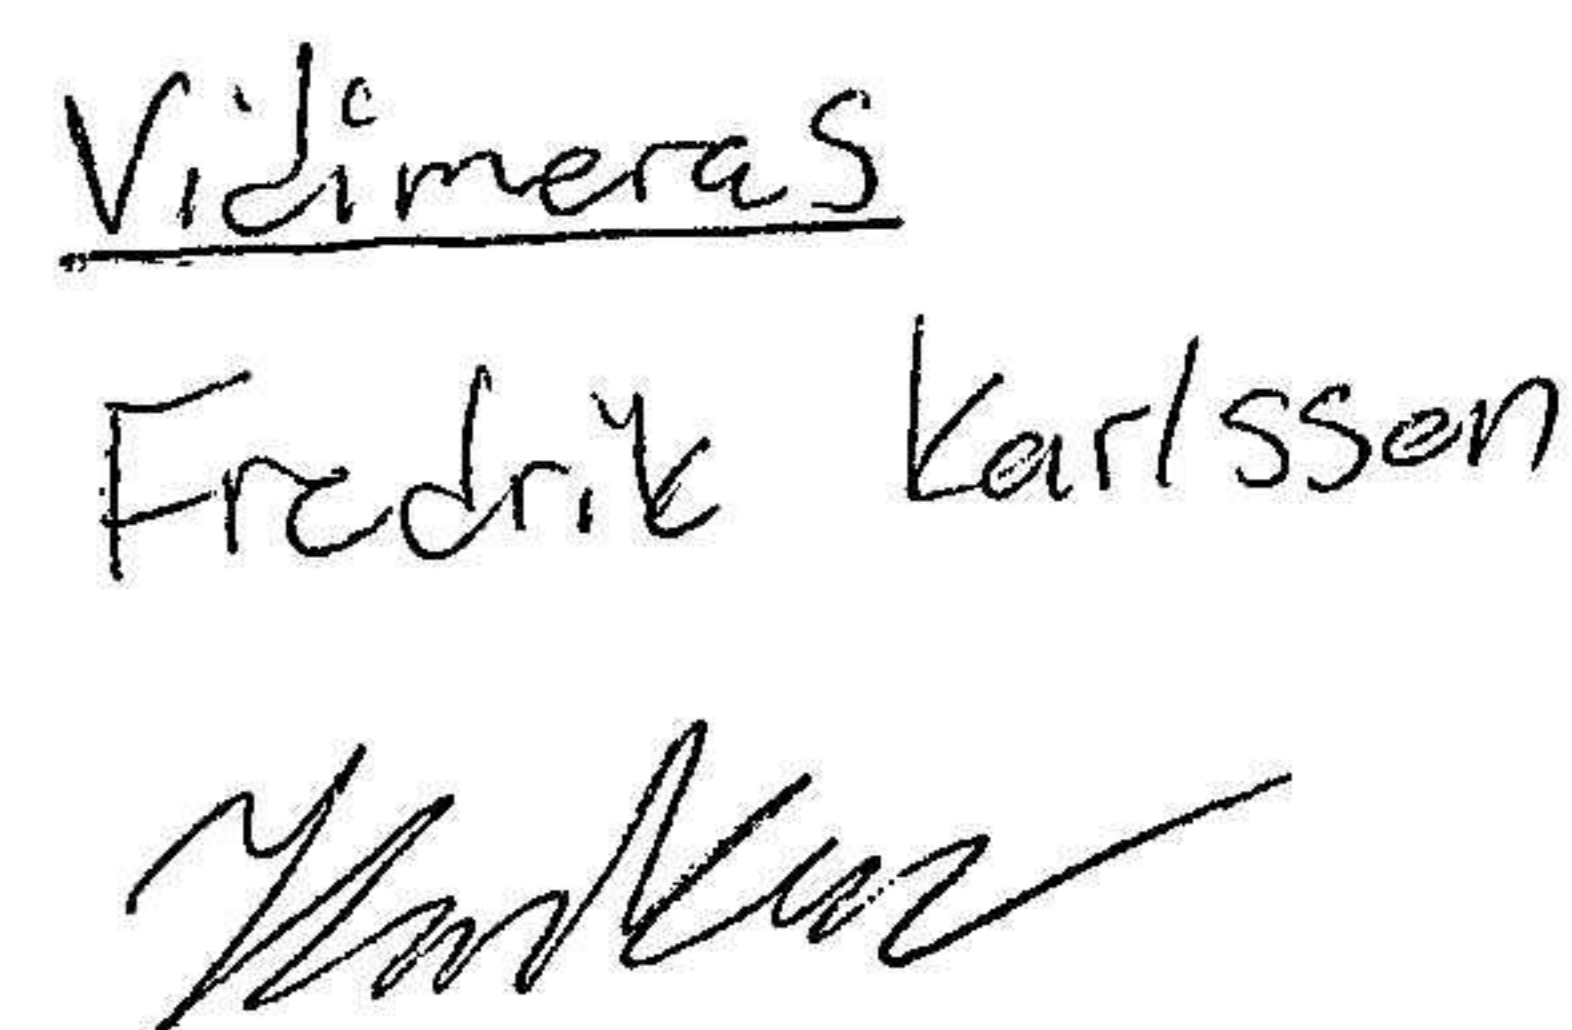 Vidimeras
Fredrik Karlssen